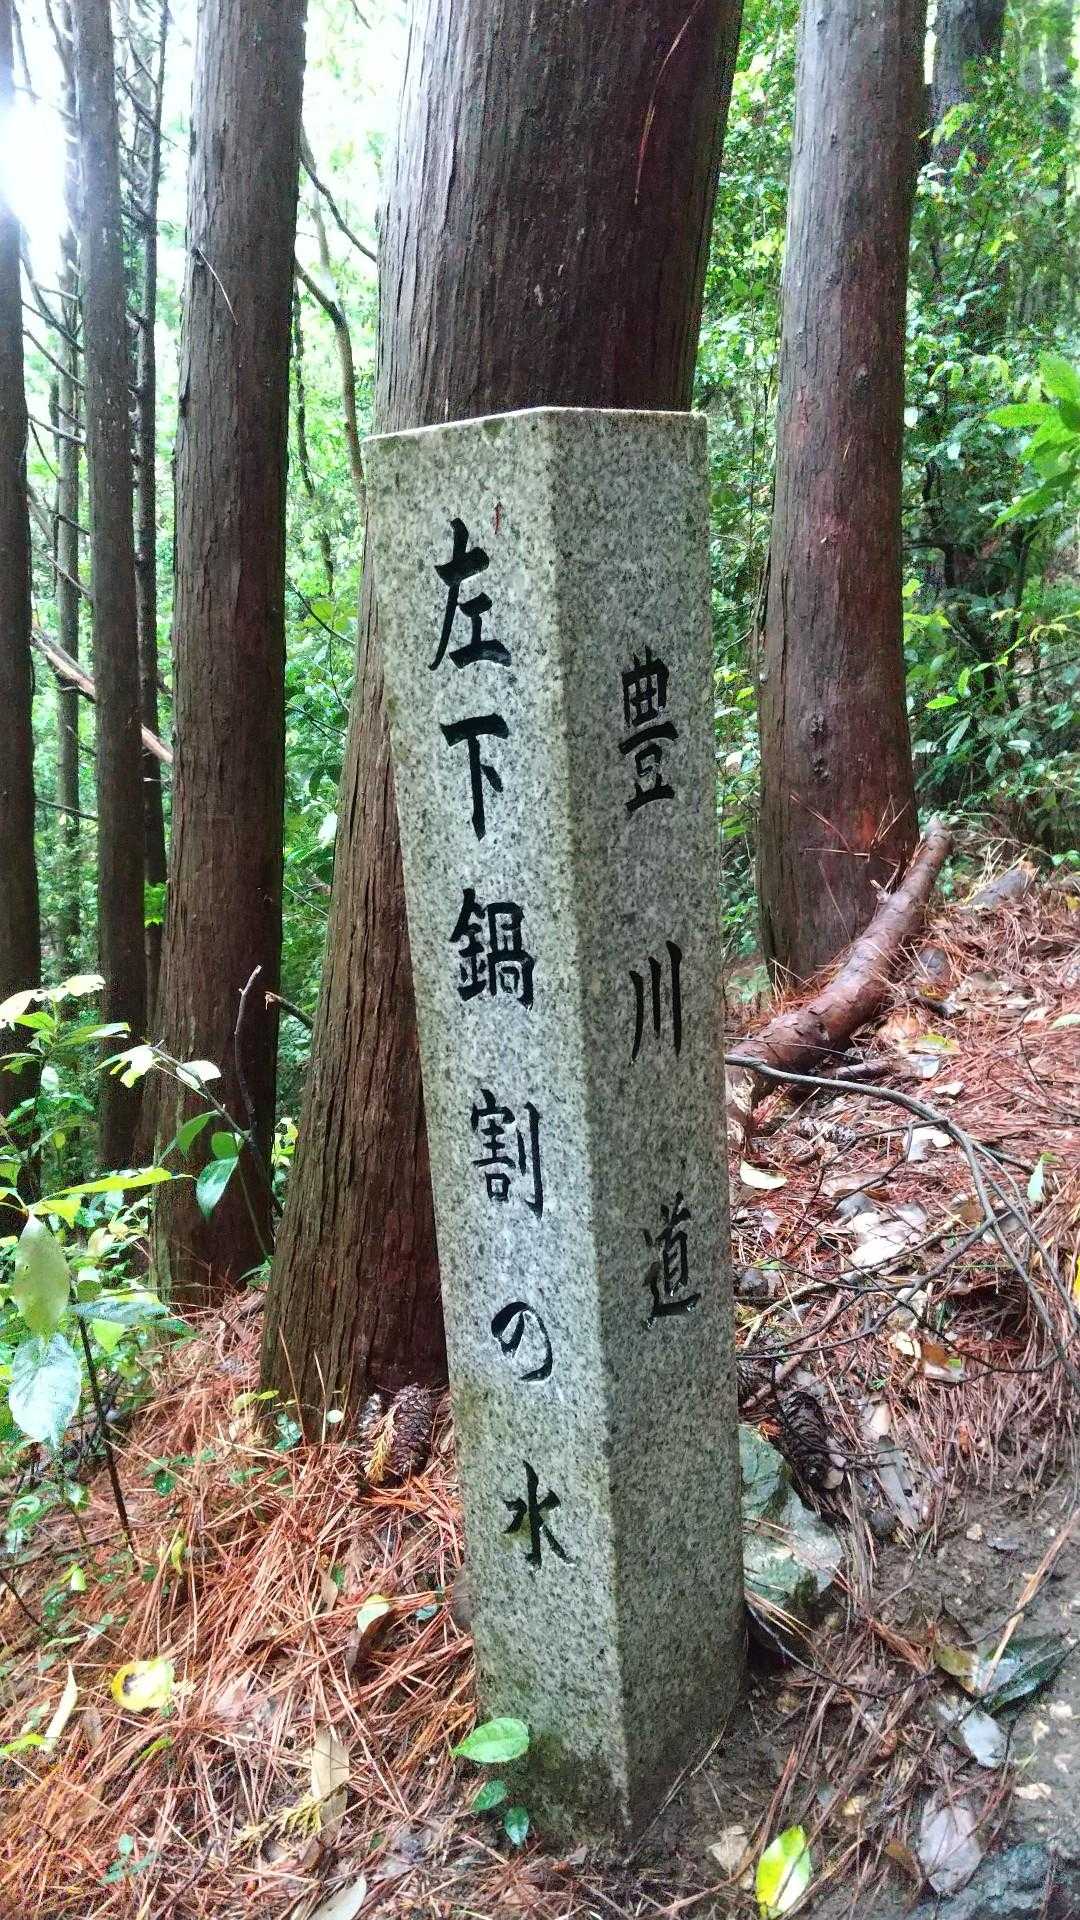 豊川道
左下鍋割の水